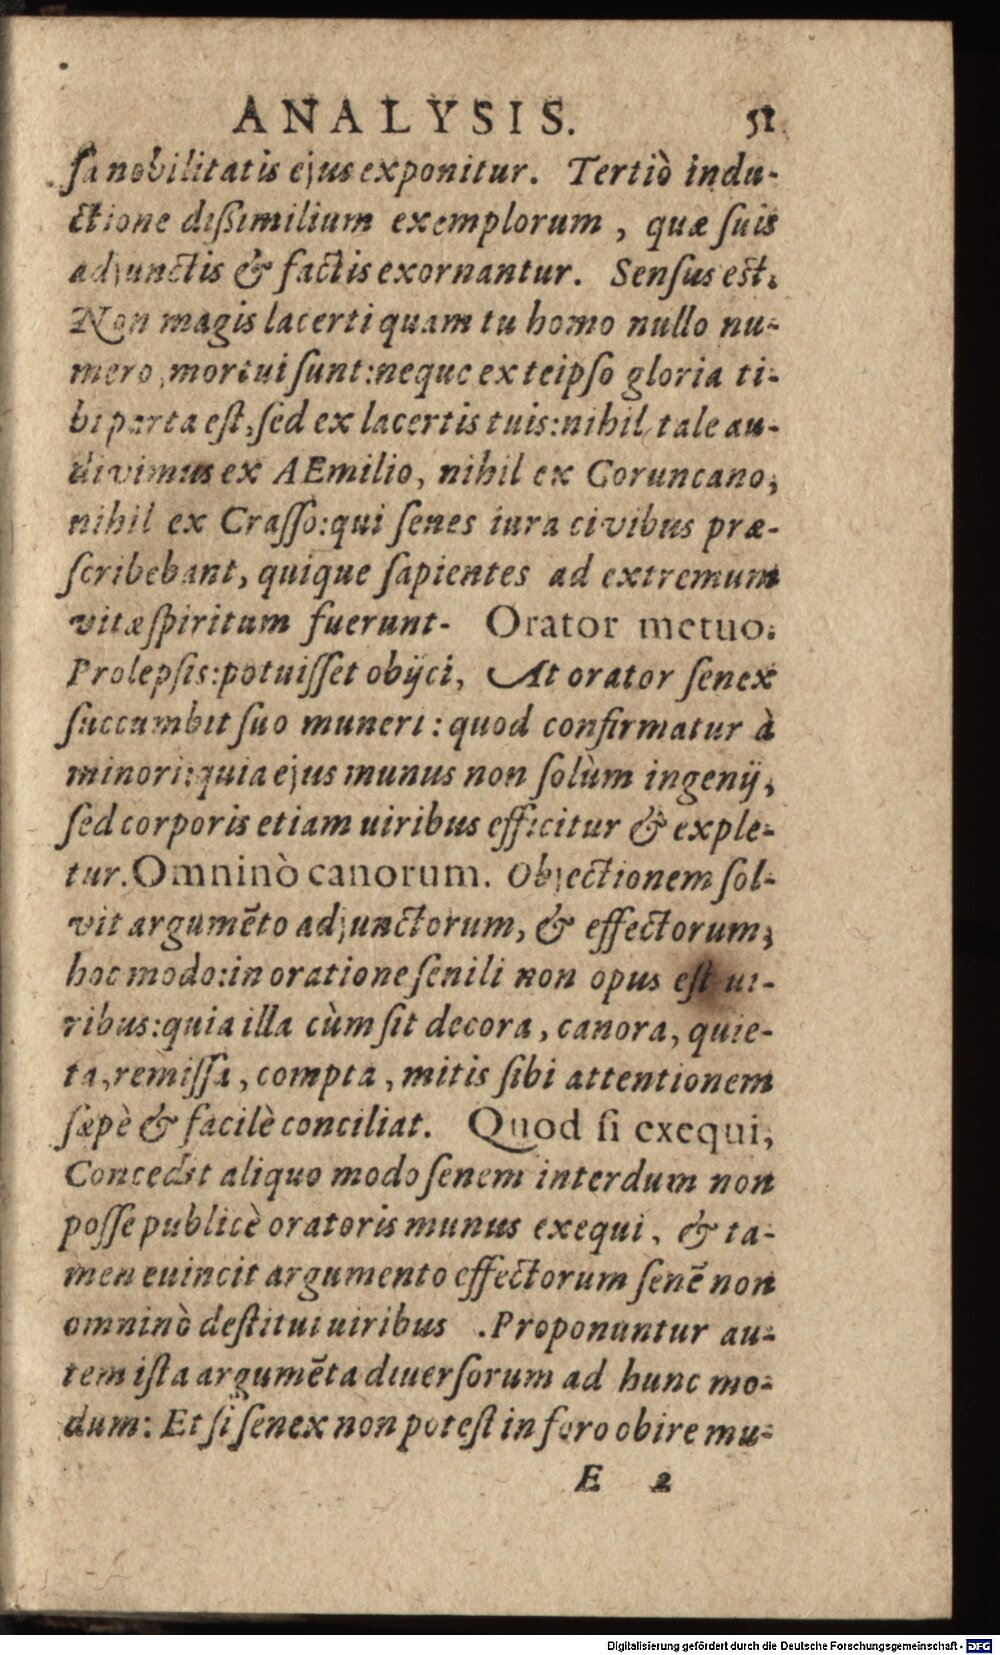 ANALYSIS. 51
ſa nobilitatis ejus exponitur. Tertiò indu-
ctione dißimilium exemplorum, quæ ſuis
adjunctis & factis exornantur. Senſus est.
Non magis lacerti quam tu homo nullo nu-
mero, mortui ſunt: neque ex teipſo gloria ti-
bi parta eſt, ſed ex lacertis tuis: nihil tale au-
divimus ex AEmilio, nihil ex Coruncano,
nihil ex Craſſo: qui ſenes iura civibus præ-
ſcribebant, quique ſapientes ad extremum
vitæ ſpiritum fuerunt. Orator metuo.
Prolepſis: potuiſſet obijci, At orator ſenex
ſuccumbit ſuo muneri: quod confirmatur à
minori: quia ejus munus non ſolùm ingenij,
ſed corporis etiam uiribus efficitur & exple-
tur. Omninò canorum. Objectionem ſol-
vit argumẽto adjunctorum, & effectorum,
hoc modo: in oratione ſenili non opus eſt ui-
ribus: quia illa cùm ſit decora, canora, quie-
ta, remiſſa, compta, mitis ſibi attentionem
ſæpè & facilè conciliat. Quod ſi exequi,
Concedit aliquo modo ſenem interdum non
poſſe publicè oratoris munus exequi, & ta-
men euincit argumento effectorum ſenẽ non
omninò deſtitui uiribus. Proponuntur au-
tem iſta argumẽta diuerſorum ad hunc mo-
dum: Et ſi ſenex non poteſt in foro obire mu-
E 2
Digitalisierung gefördert durch die Deutsche Forschungsgemeinschaft - DFG